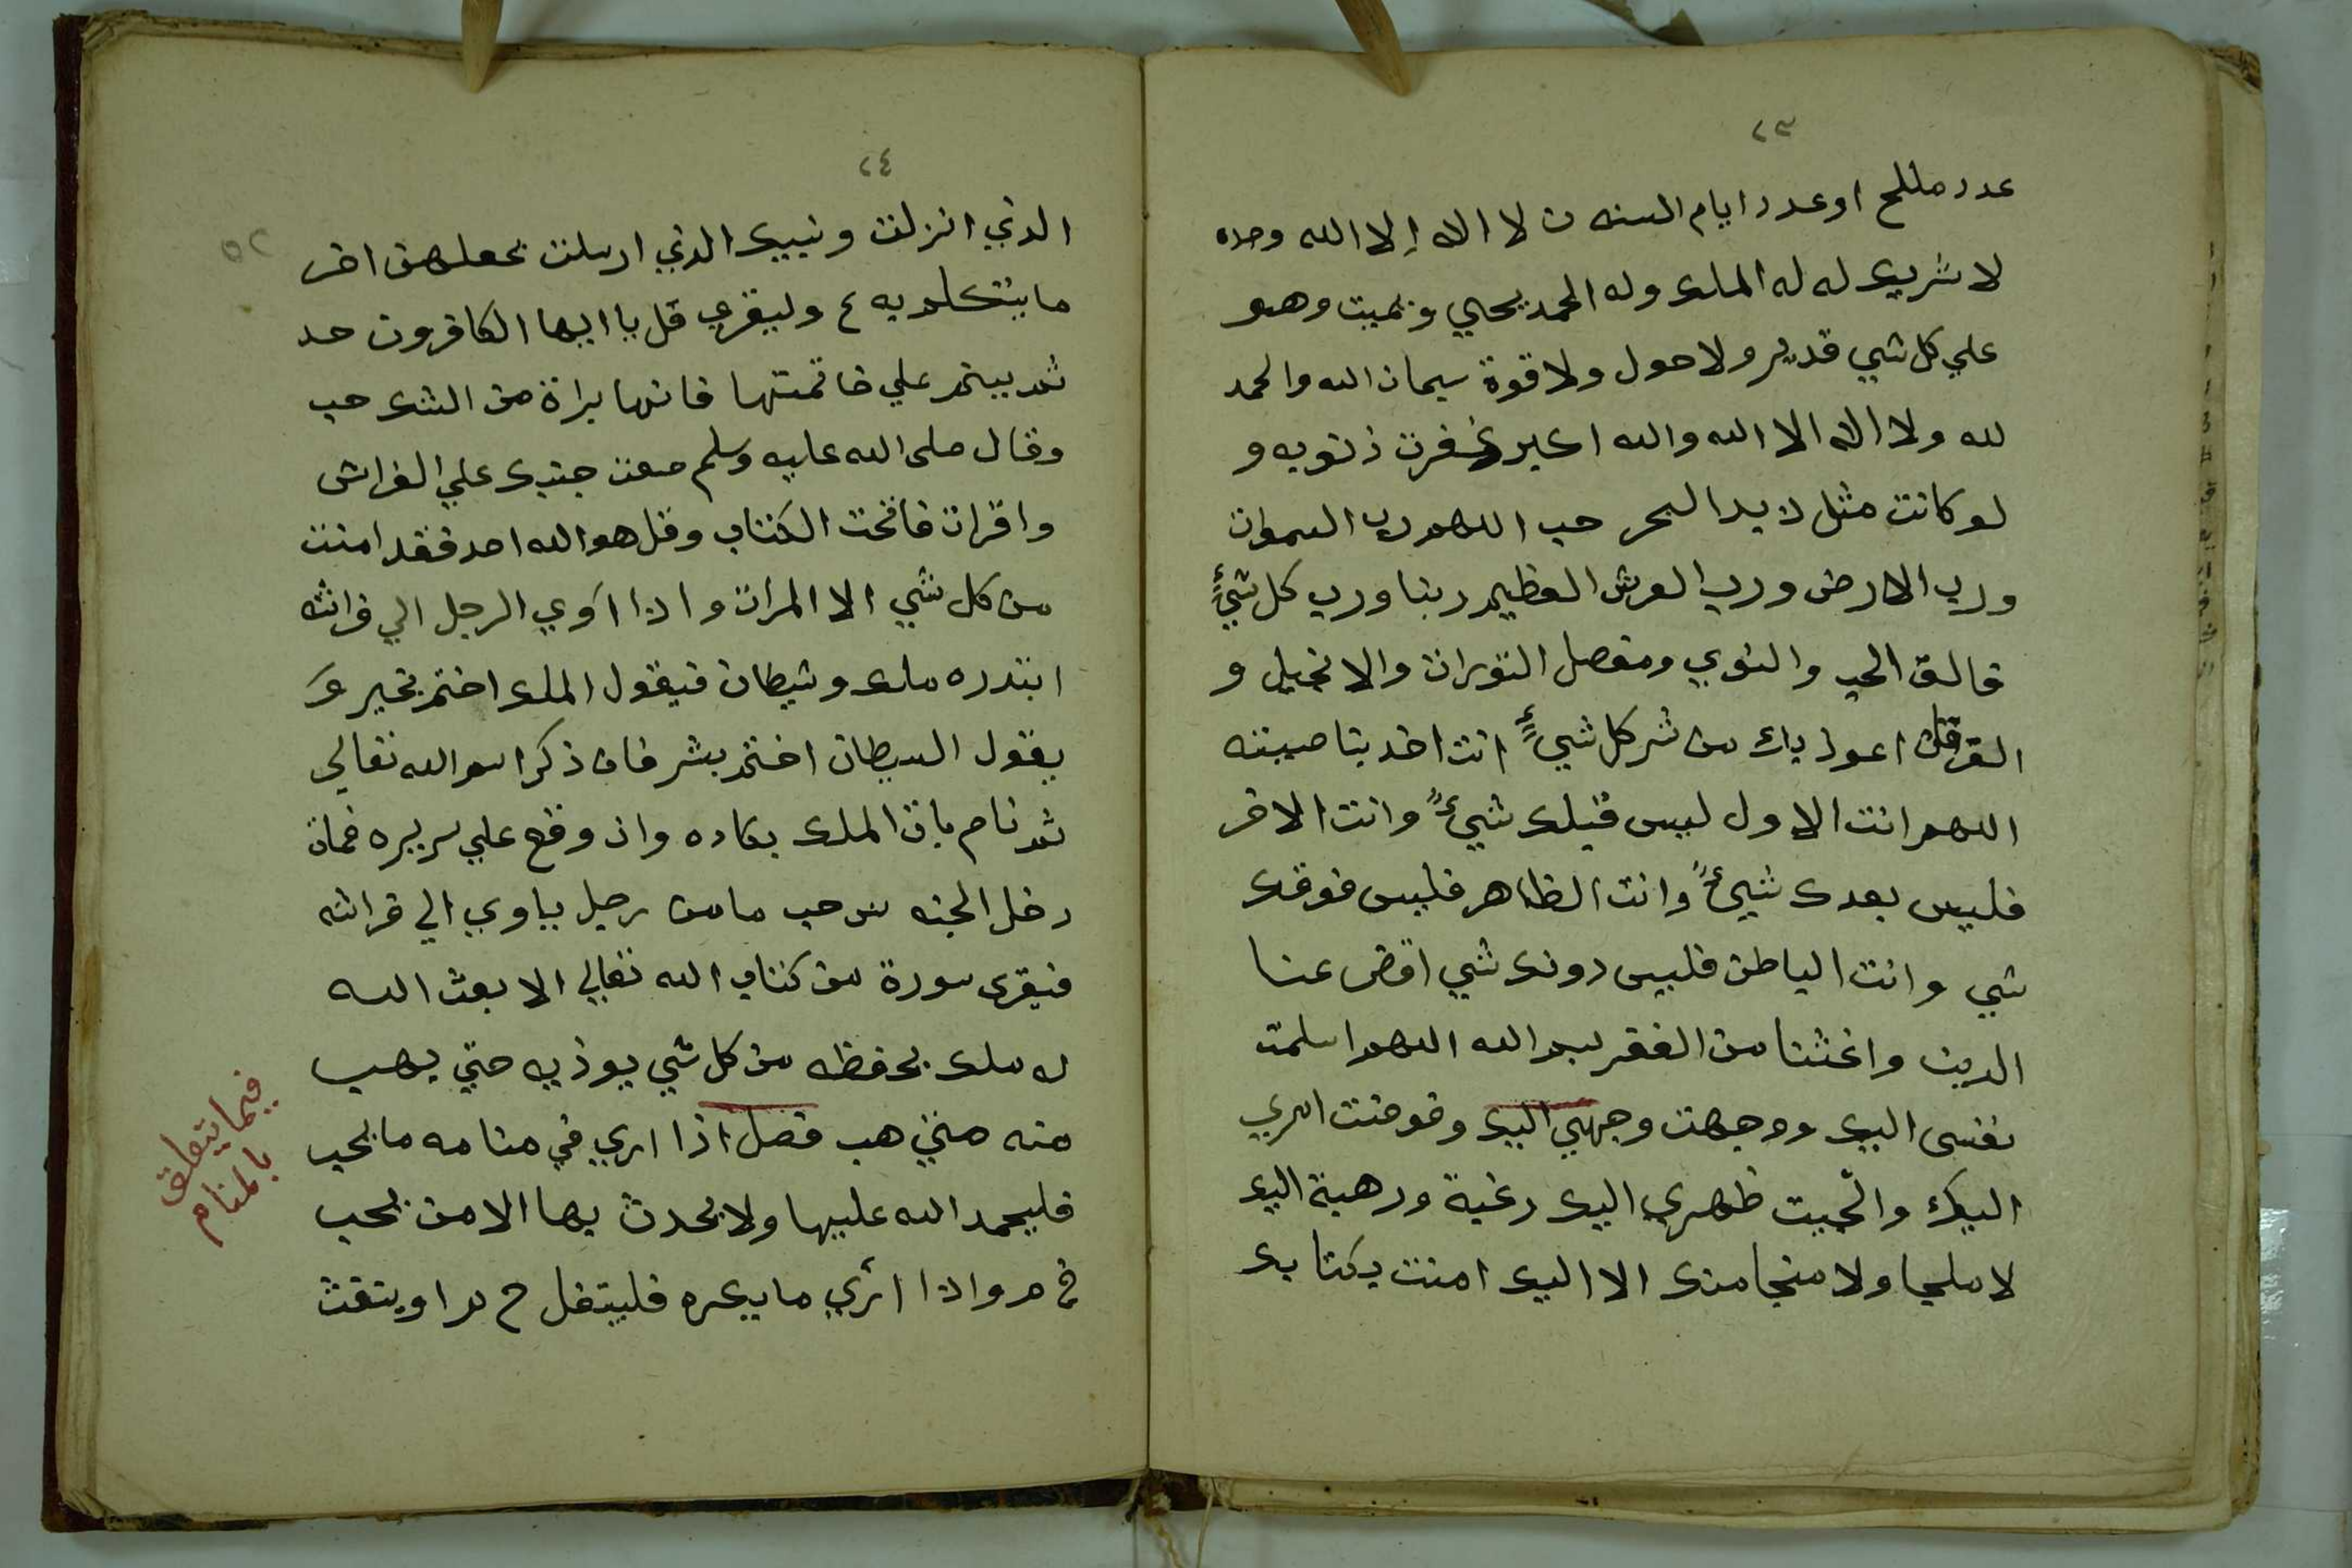 ٢٣
عدد رمل عالج او عدد ايام السنه ت لا اله إلا الله وحده
لا شريك له له الملك وله الحمد يحيي ويميت وهو
علي كل شي قدير ولا حول ولا قوة سبحان الله والحمد
لله ولا اله الا الله والله اكبر غفرت ذنوبه و
لو كانت مثل زبد البحر حب اللهم رب السموات
ورب الارض ورب العرش العظيم ربنا ورب كل شيءٍ
فالق الحب والنوي ومنصل التورات والانجيل و
الفرقان اعوذ بك من شر كل شيءٍ انت اخد بناصيته
اللهم انت الاول ليس قبلك شيءً وانت الاخر
فليس بعدك شيءً وانت الظاهر فليس فوقك
شي وانت الباطن فليس دونك شي اقض عنا
الدين واغننا من الفقر بسم الله اللهم اسلمت
نفسي اليك ووجهت وجهي اليك وفوضت امري
اليك والجيت ظهري اليك رغبة ورهبة اليك
لا ملجا ولا منجا منك الا اليك امنت بكتابك
٢٤
٥٢
الذي انزلت ونبيك الذي ارسلت يجعلهن اخر
ما يتكلم به ع وليقري قل يا ايها الكافرون حد
ثم ينم علي خاتمتها فانها براة من الشرك حب
وقال صلى الله عليه وسلم ضعت جنبك علي الفراش
واقرات فاتحت الكتاب وقل هو الله احد فقد امنت
من كل شي الا المرات واذا آوي الرجل الي فراشه
ابتدره ملك وشيطان فيقول الملك اختم بخير وَ
يقول السيطان اختم بشر فان ذكر اسم الله تعالي
ثم نام بات الملك يكلاه وان وقع علي سريره فمات
دخل الجنه س حب ما من رجل ياوي الي فراشه
فيقري سورة من كتاب الله تعالي الا بعث الله
له ملك يحفظه من كل شي يوذيه حتي يهب
منه متي هب فصل اذا اري في منامه ما يحب
فليحمد الله عليها ولا يحدث بها الا من يحب
خ م واذا ارٔي ما يكره فليتفل خ م او ينفث
فيما يتعلق
بالمنام